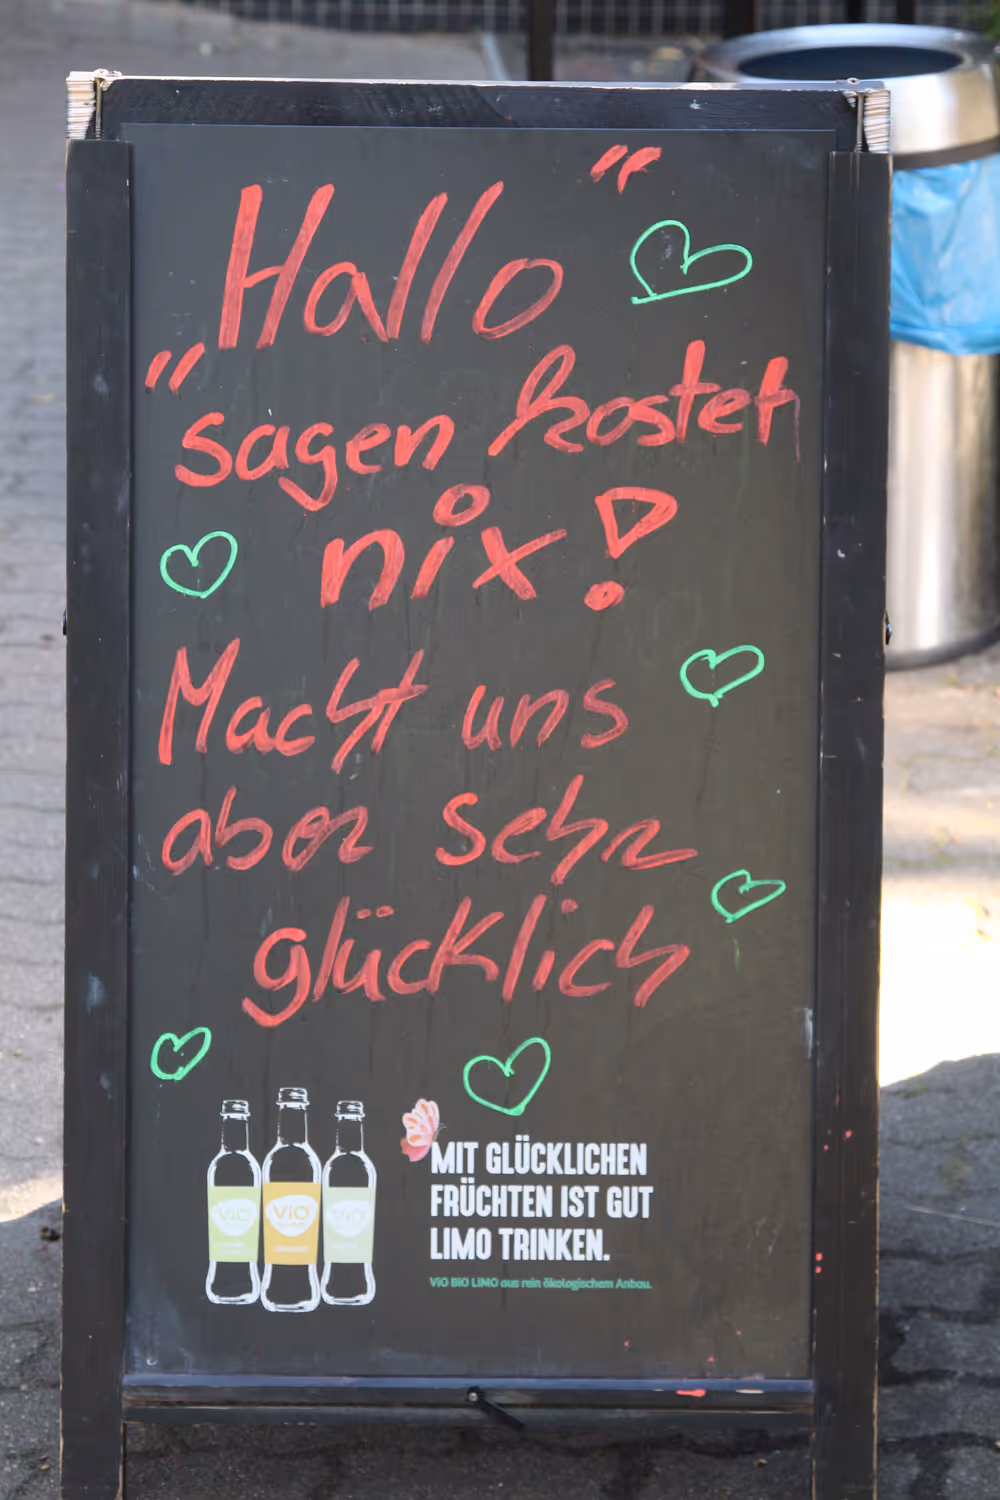 Hallo "
" sagen kostet
nix!
Macht uns
aber sehr
glücklich
ViO ViO ViO
MIT GLÜCKLICHEN
FRÜCHTEN IST GUT
LIMO TRINKEN.
ViO BIO LIMO aus rein ökologischem Anbau.